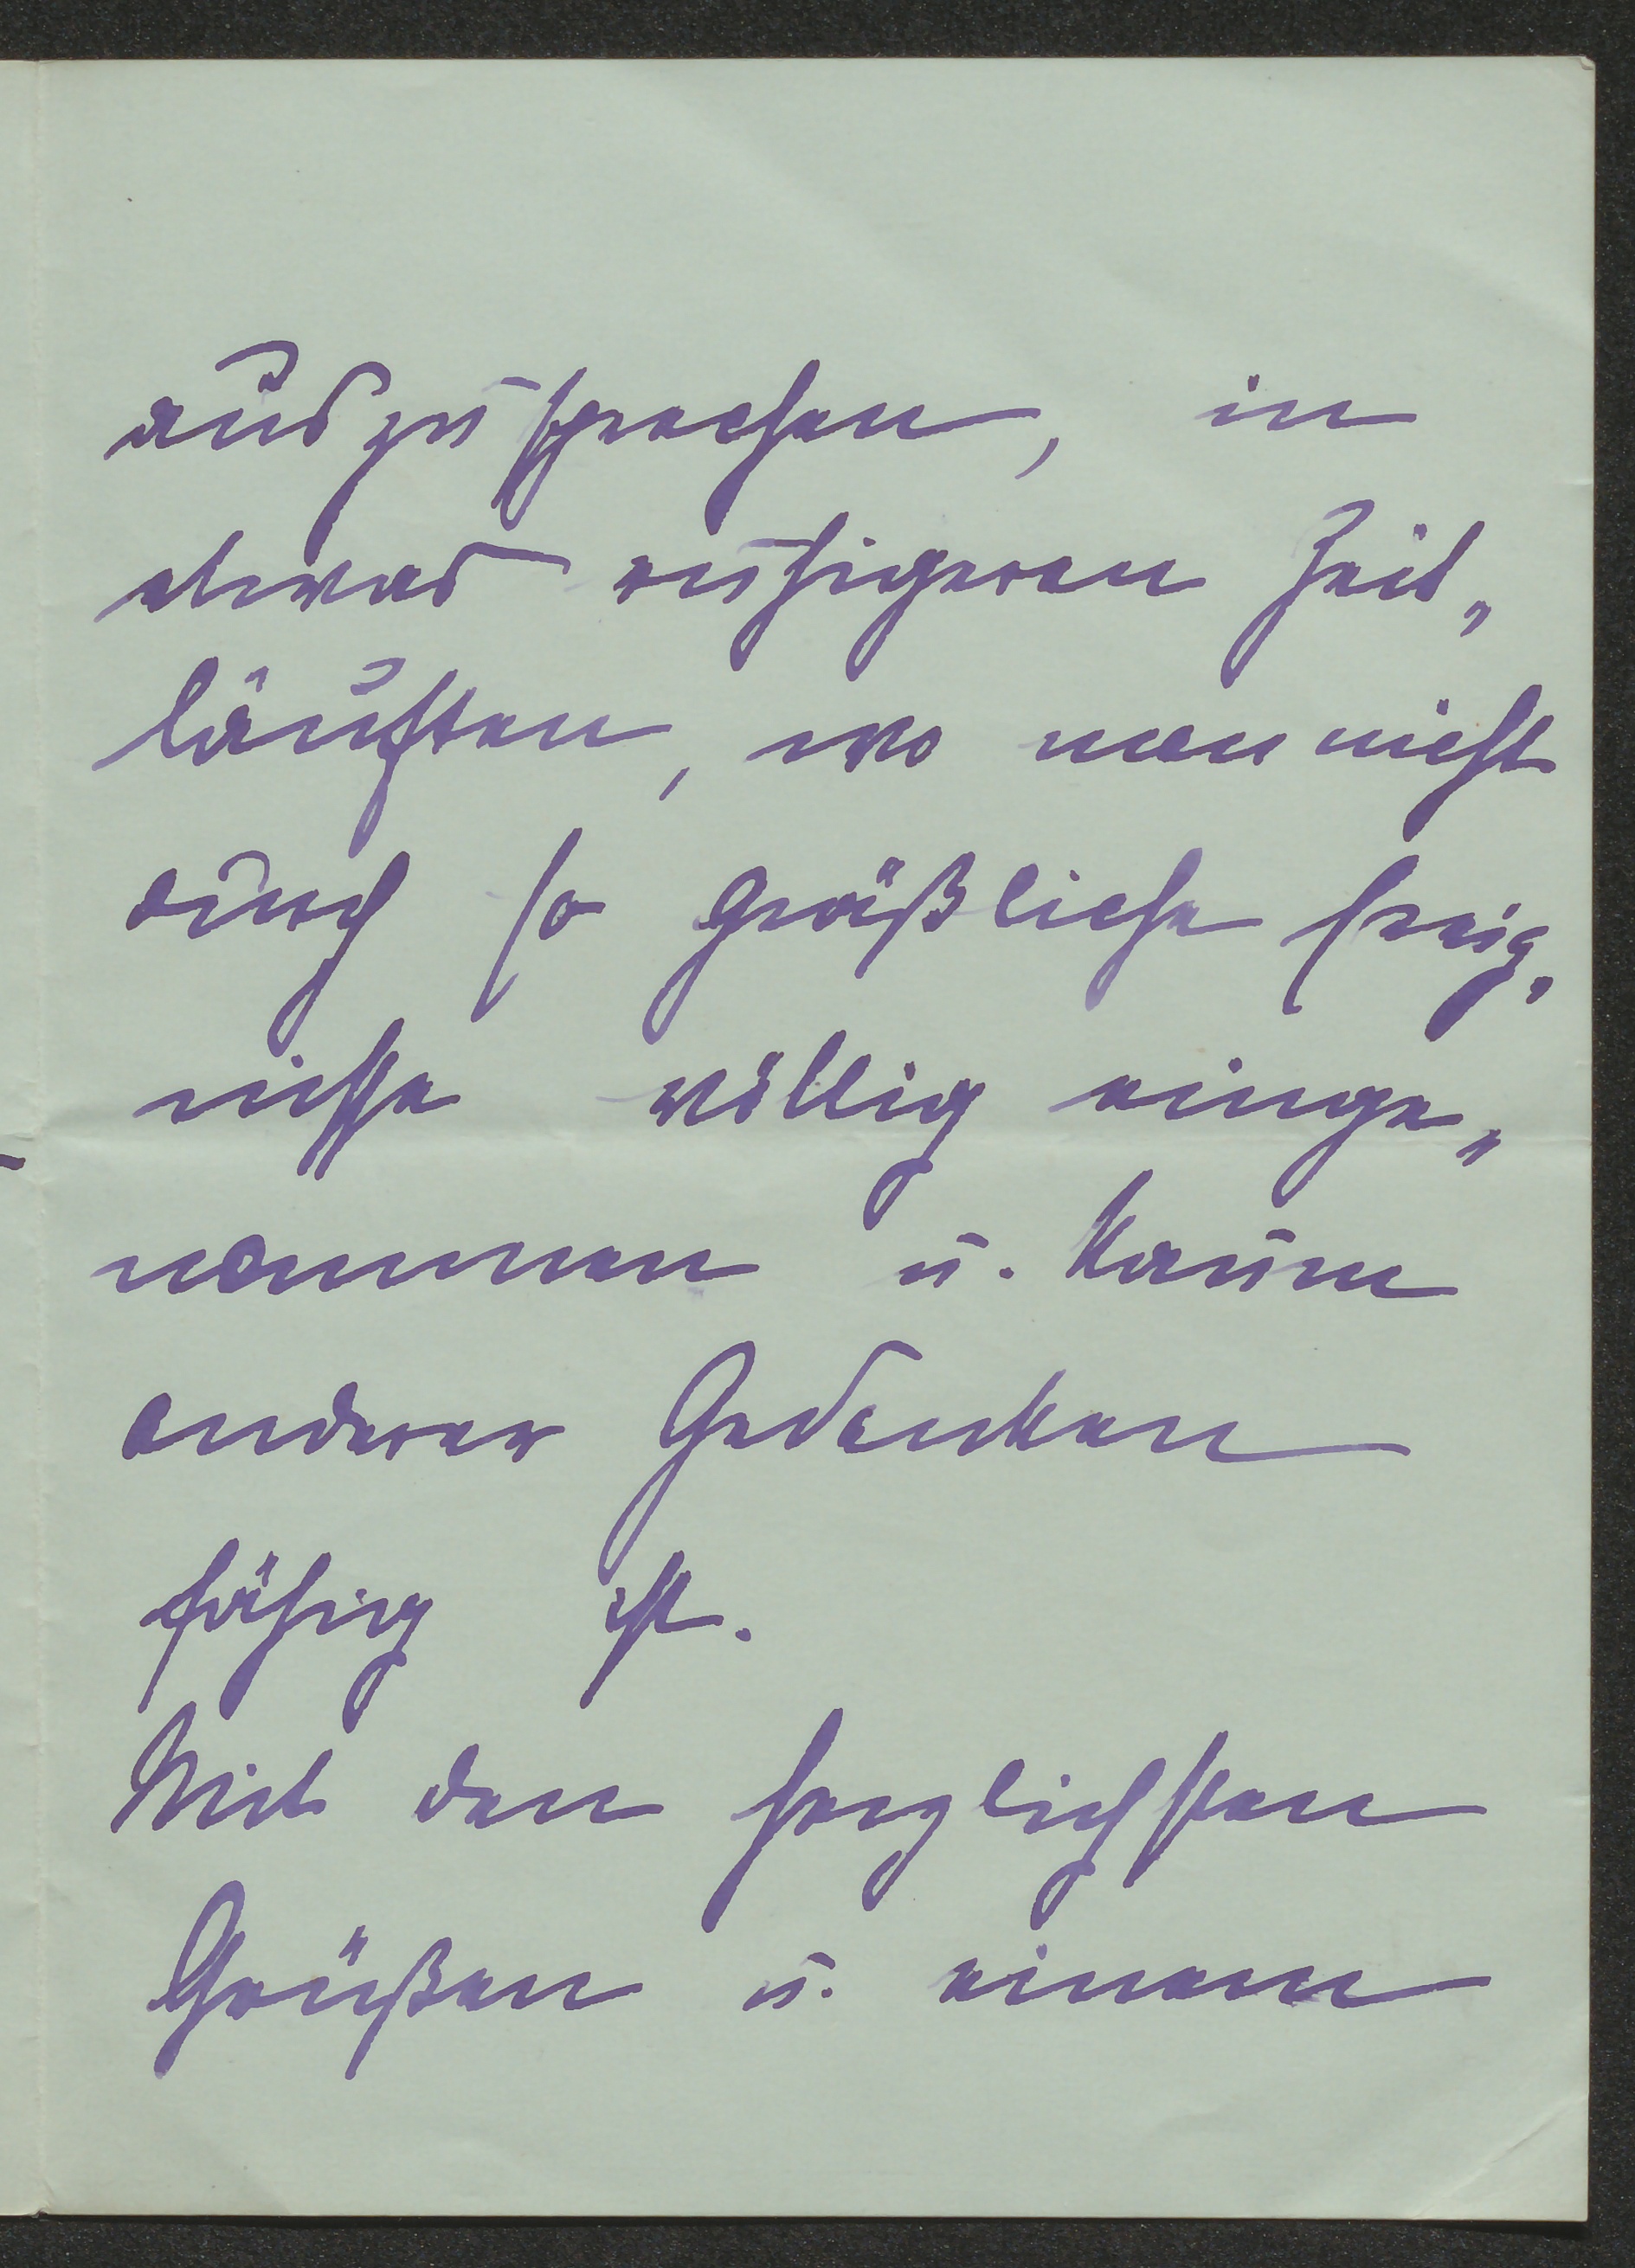 auszusprechen, in
etwas ruhigeren Zeit„
läuften, wo man nicht
durch so gräßliche Ereig„
nisse völlig einge„
nommen u. kaum
anderer Gedanken
fähig ist.
Mit den herzlichsten
Grüßen u. einem